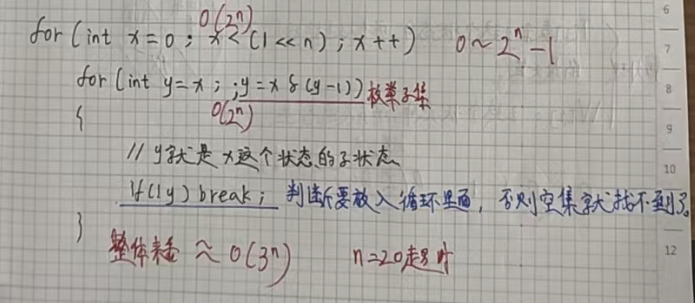 O(2ⁿ)
for (int x=0; x<(1<<n); x++) 0~2ⁿ-1
for (int y=x; ;y=x&(y-1)) 枚举子集
O(2ⁿ)
{
// y就是x这个状态的子状态
if(!y) break; 判断要放入循环里面,否则空集就找不到了。
}
整体来看 ≈ O(3ⁿ) n=20超时
6
7
8
9
10
11
12